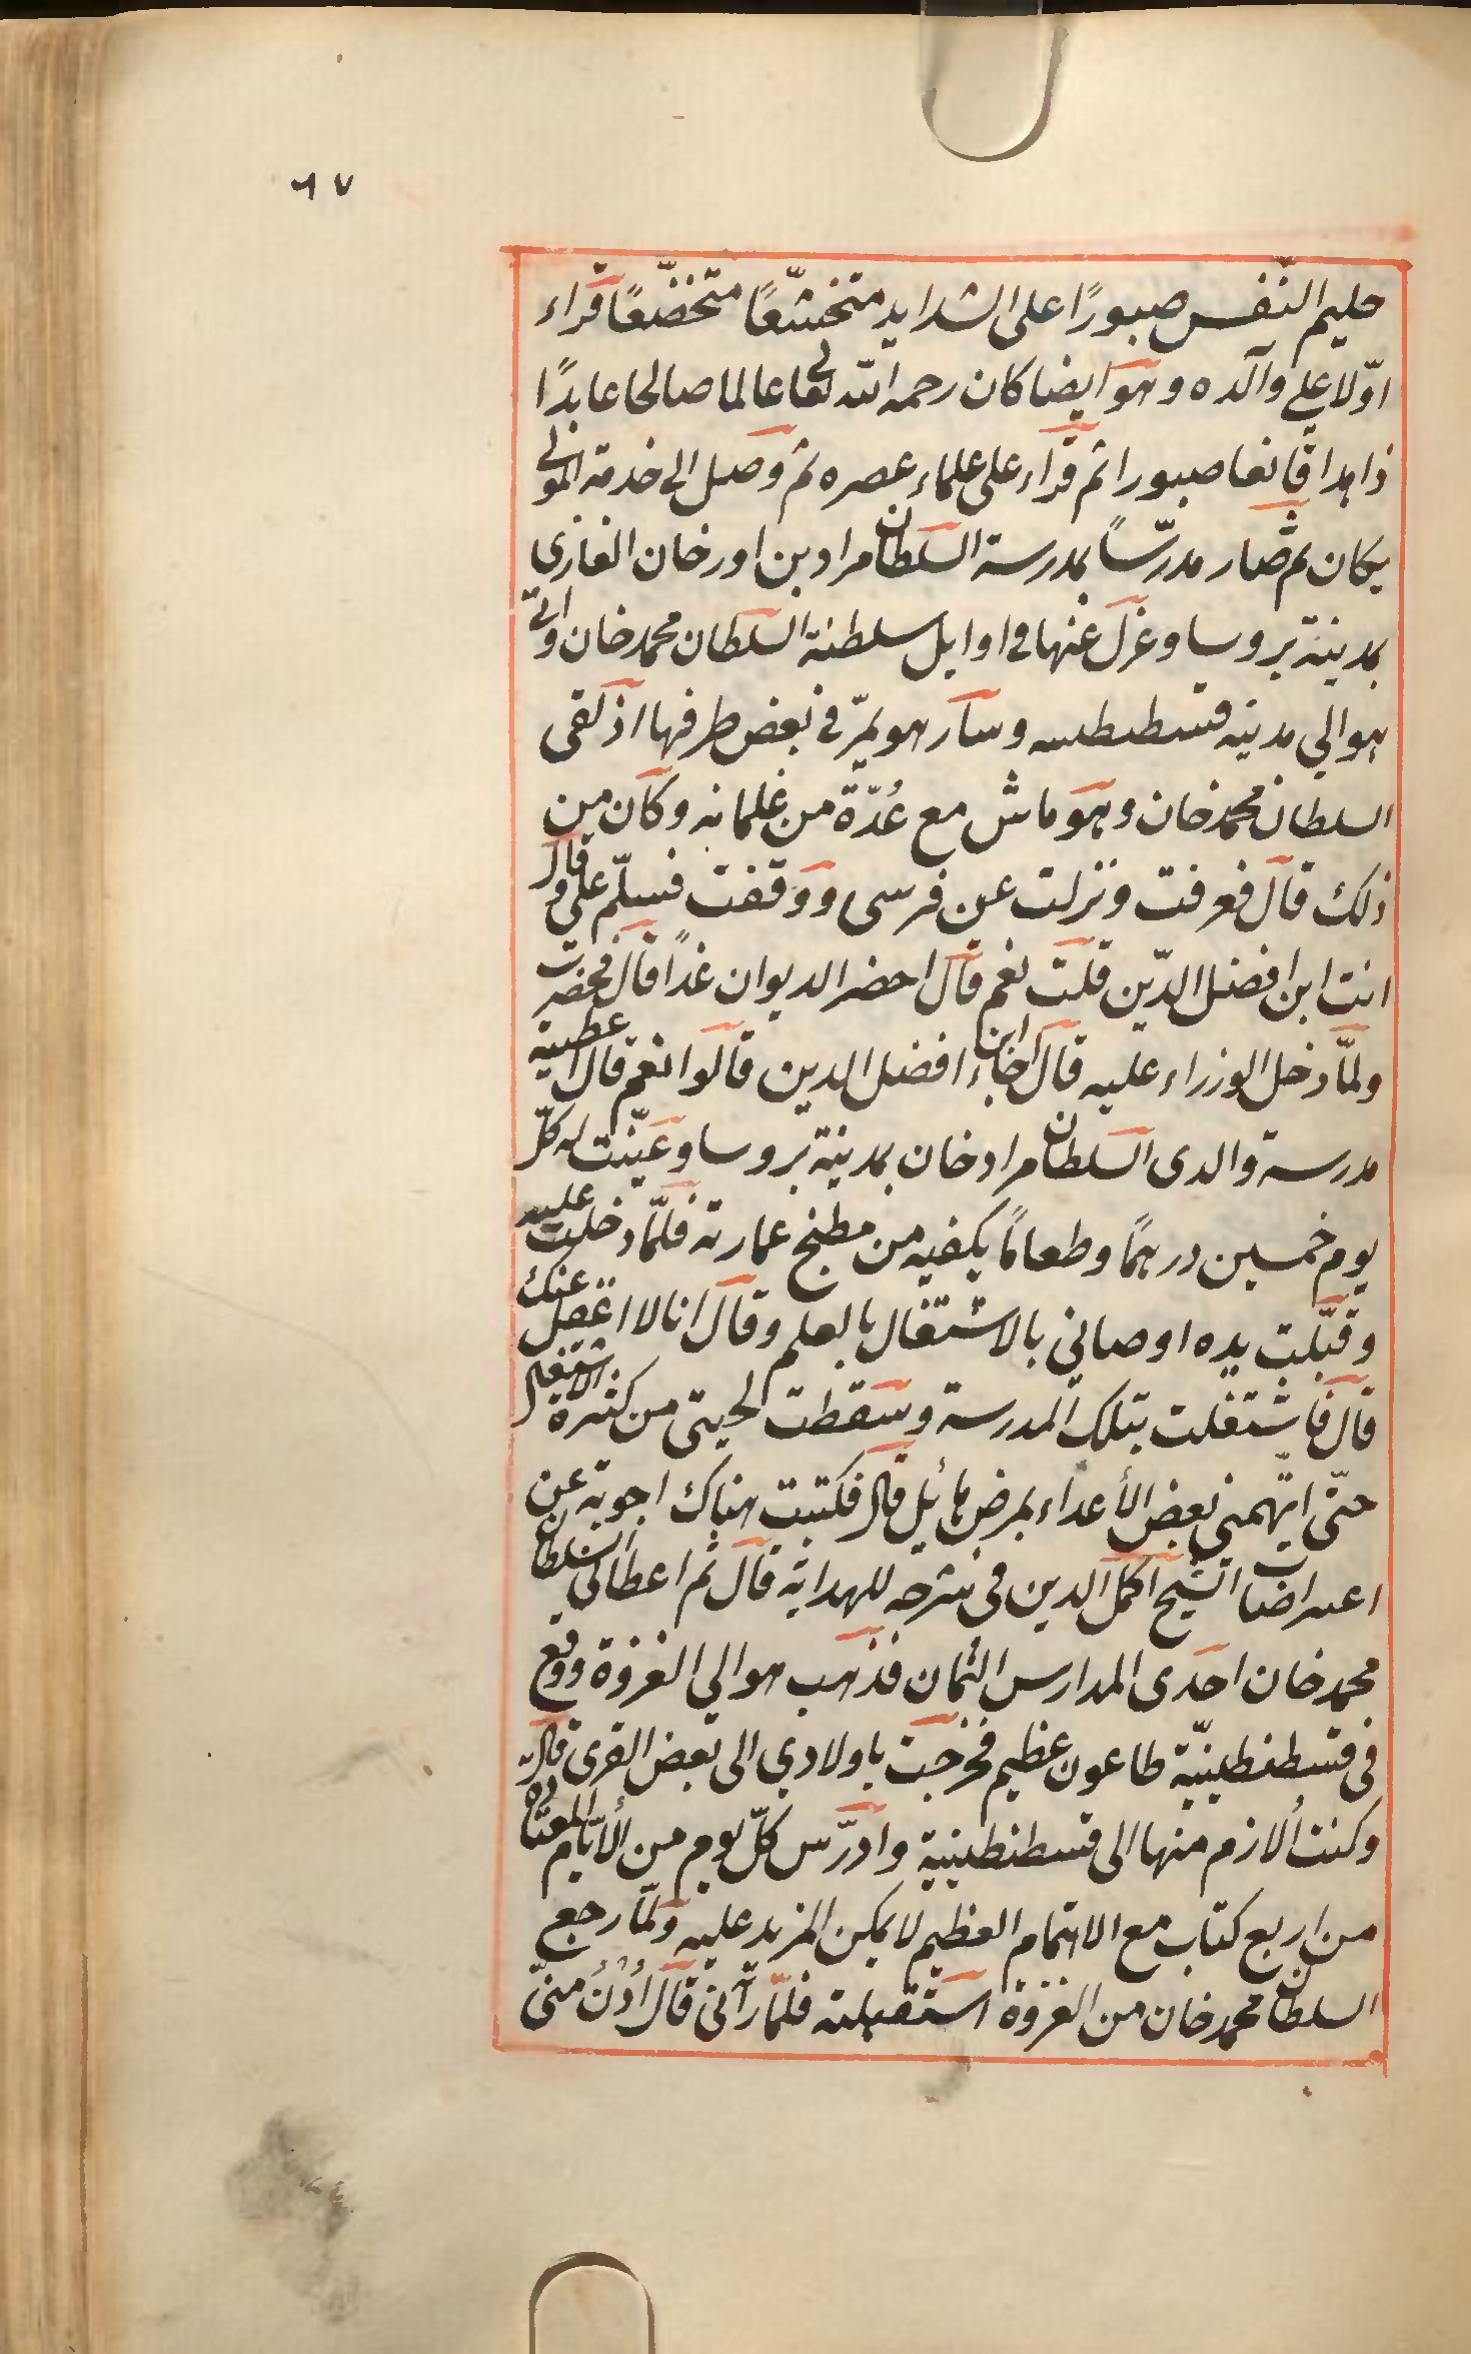 ٦٧
حليم النّفس صبورًا على الشدايد متخشّعًا متخضّعًا قراء
اوّلا على والده وهو ايضا كان رحمه الله تعالى عالما صالحا عابدًا
زاهدا قانعا صبورا ثم قراء على علماء عصره ثم وصل الى خدمة المولى
يكان ثم صار مدرّسًا بمدرسة السلطان مراد بن اورخان الغازى
بمدينة بروسا وعزل عنها فى اوايل سلطنة السلطان محمد خان واتى
هو الى مدينة قسطنطنيه وسار هو يمرّ فى بعض طرقها اذ لقى
السلطان محمد خان وهو ماش مع عُدّة من غلمانه وكان من
ذلك قال فعرفت ونزلت عن فرسى ووقفت فسلّم على وقال
انت ابن افضل الدّين قلت نعم قال احضر الديوان غدًا قال فحضرت
ولمّا دخل الوزراء عليه قال اجاء ابن افضل الدين قالوا نعم قال اعطيته
مدرسة والدى السلطان مراد خان بمدينة بروسا وعيّنت له كلّ
يوم خمسين درهمًا وطعامًا يكفيه من مطبخ عمارته فلمّا دخلت عليه
وقبّلت يده اوصانى بالاشتغال بالعلم وقال انا لا اغفل عنك
قال فاشتغلت بتلك المدرسة وسقطت لحيتى من كثرة الاشتغال
حتّى اتّهمنى بعض الأعداء بمرض هائل قال فكتبت هناك اجوبة عن
اعتراضات الشيخ اكمل الدين فى شرحه للهداية قال ثم اعطانى السلطان
محمد خان احدى المدارس الثمان فذهب هو الى الغزوة ووقع
فى قسطنطينيّة طاعون عظيم فخرجت باولادى الى بعض القرى قال
وكنت ألازم منها الى قسطنطينية وادرّس كلّ يوم من الأيّام المعتادة
من اربع كتاب مع الاهتمام العظيم لا يمكن المزيد عليه ولمّا رجع
السلطان محمد خان من الغزوة استقبلته فلمّا رآنى قال اُدْنُ منّى